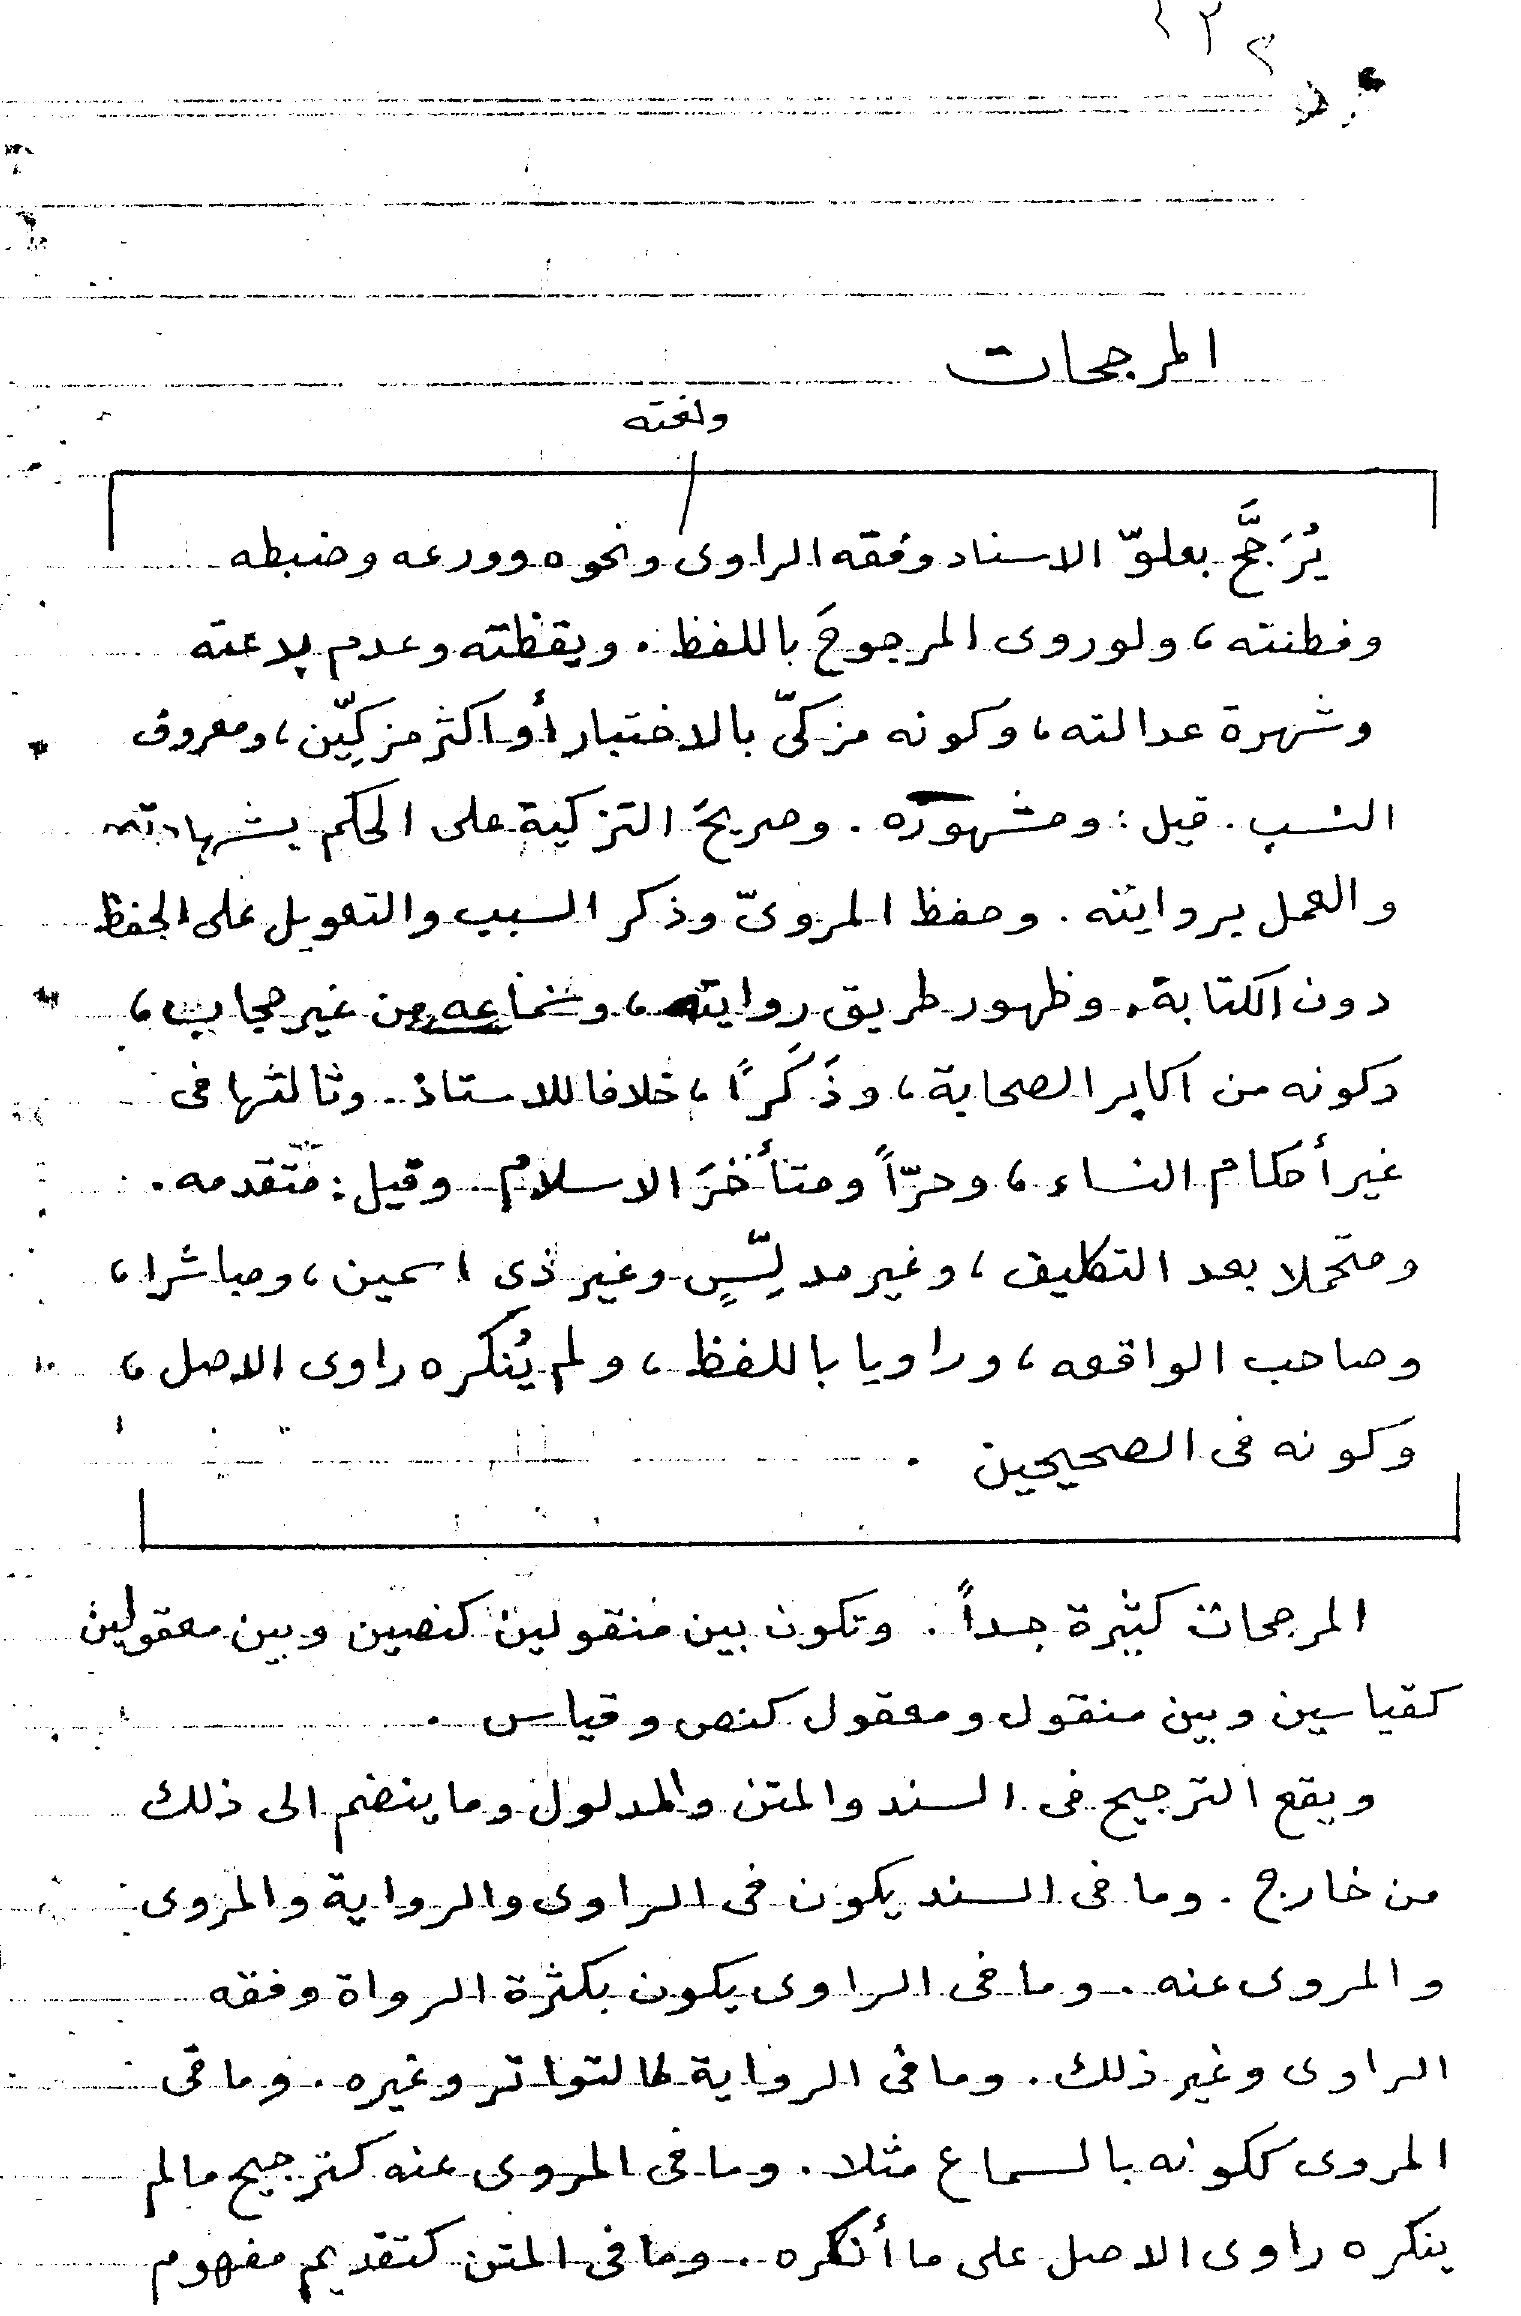 المرجحات
ولغته
يُرَجَّح بعلوّ الاسناد وفقه الراوى ونحوه وورعه وضبطه
وفطنته، ولو روى المرجوحَ باللفظ. ويقظته وعدم بدعته
وشهرة عدالته، وكونه مزكّىً بالاختبار أو اكثر مزكِّين، ومعروف
النسب. قيل: ومشهوره. وصريحَ التزكية على الحكم بشهادته
والعمل بروايته. وحفظ المروىّ وذكر السبب والتعويل على الحفظ
دون الكتابة. وظهور طريق روايته، وسماعه من غير حجاب،
وكونه من اكابر الصحابة، وذَكَراً، خلافا للاستاذ. وثالثها فى
غير أحكام النساء، وحرّاً ومتأخرَ الاسلام. وقيل: متقدمه.
ومتحملا بعد التكليف، وغير مدلِّسٍ وغير ذى اسمين، ومباشرا،
وصاحب الواقعه، وراويا باللفظ، ولم يُنكره راوى الاصل،
وكونه فى الصحيحين.
المرجحات كثيرة جداً. وتكون بين منقولين كنصين وبين معقولين
كقياسين وبين منقول ومعقول كنص وقياس.
ويقع الترجيح فى السند والمتن والمدلول وما ينضم الى ذلك
من خارج. وما فى السند يكون فى الراوى والرواية والمروى
والمروى عنه. وما فى الراوى يكون بكثرة الرواة وفقه
الراوى وغير ذلك. وما فى الرواية كالتواتر وغيره. وما فى
المروى ككونه بالسماع مثلا. وما فى المروى عنه كترجيح مالم
ينكره راوى الاصل على ما أنكره. وما فى المتن كتقديم مفهوم